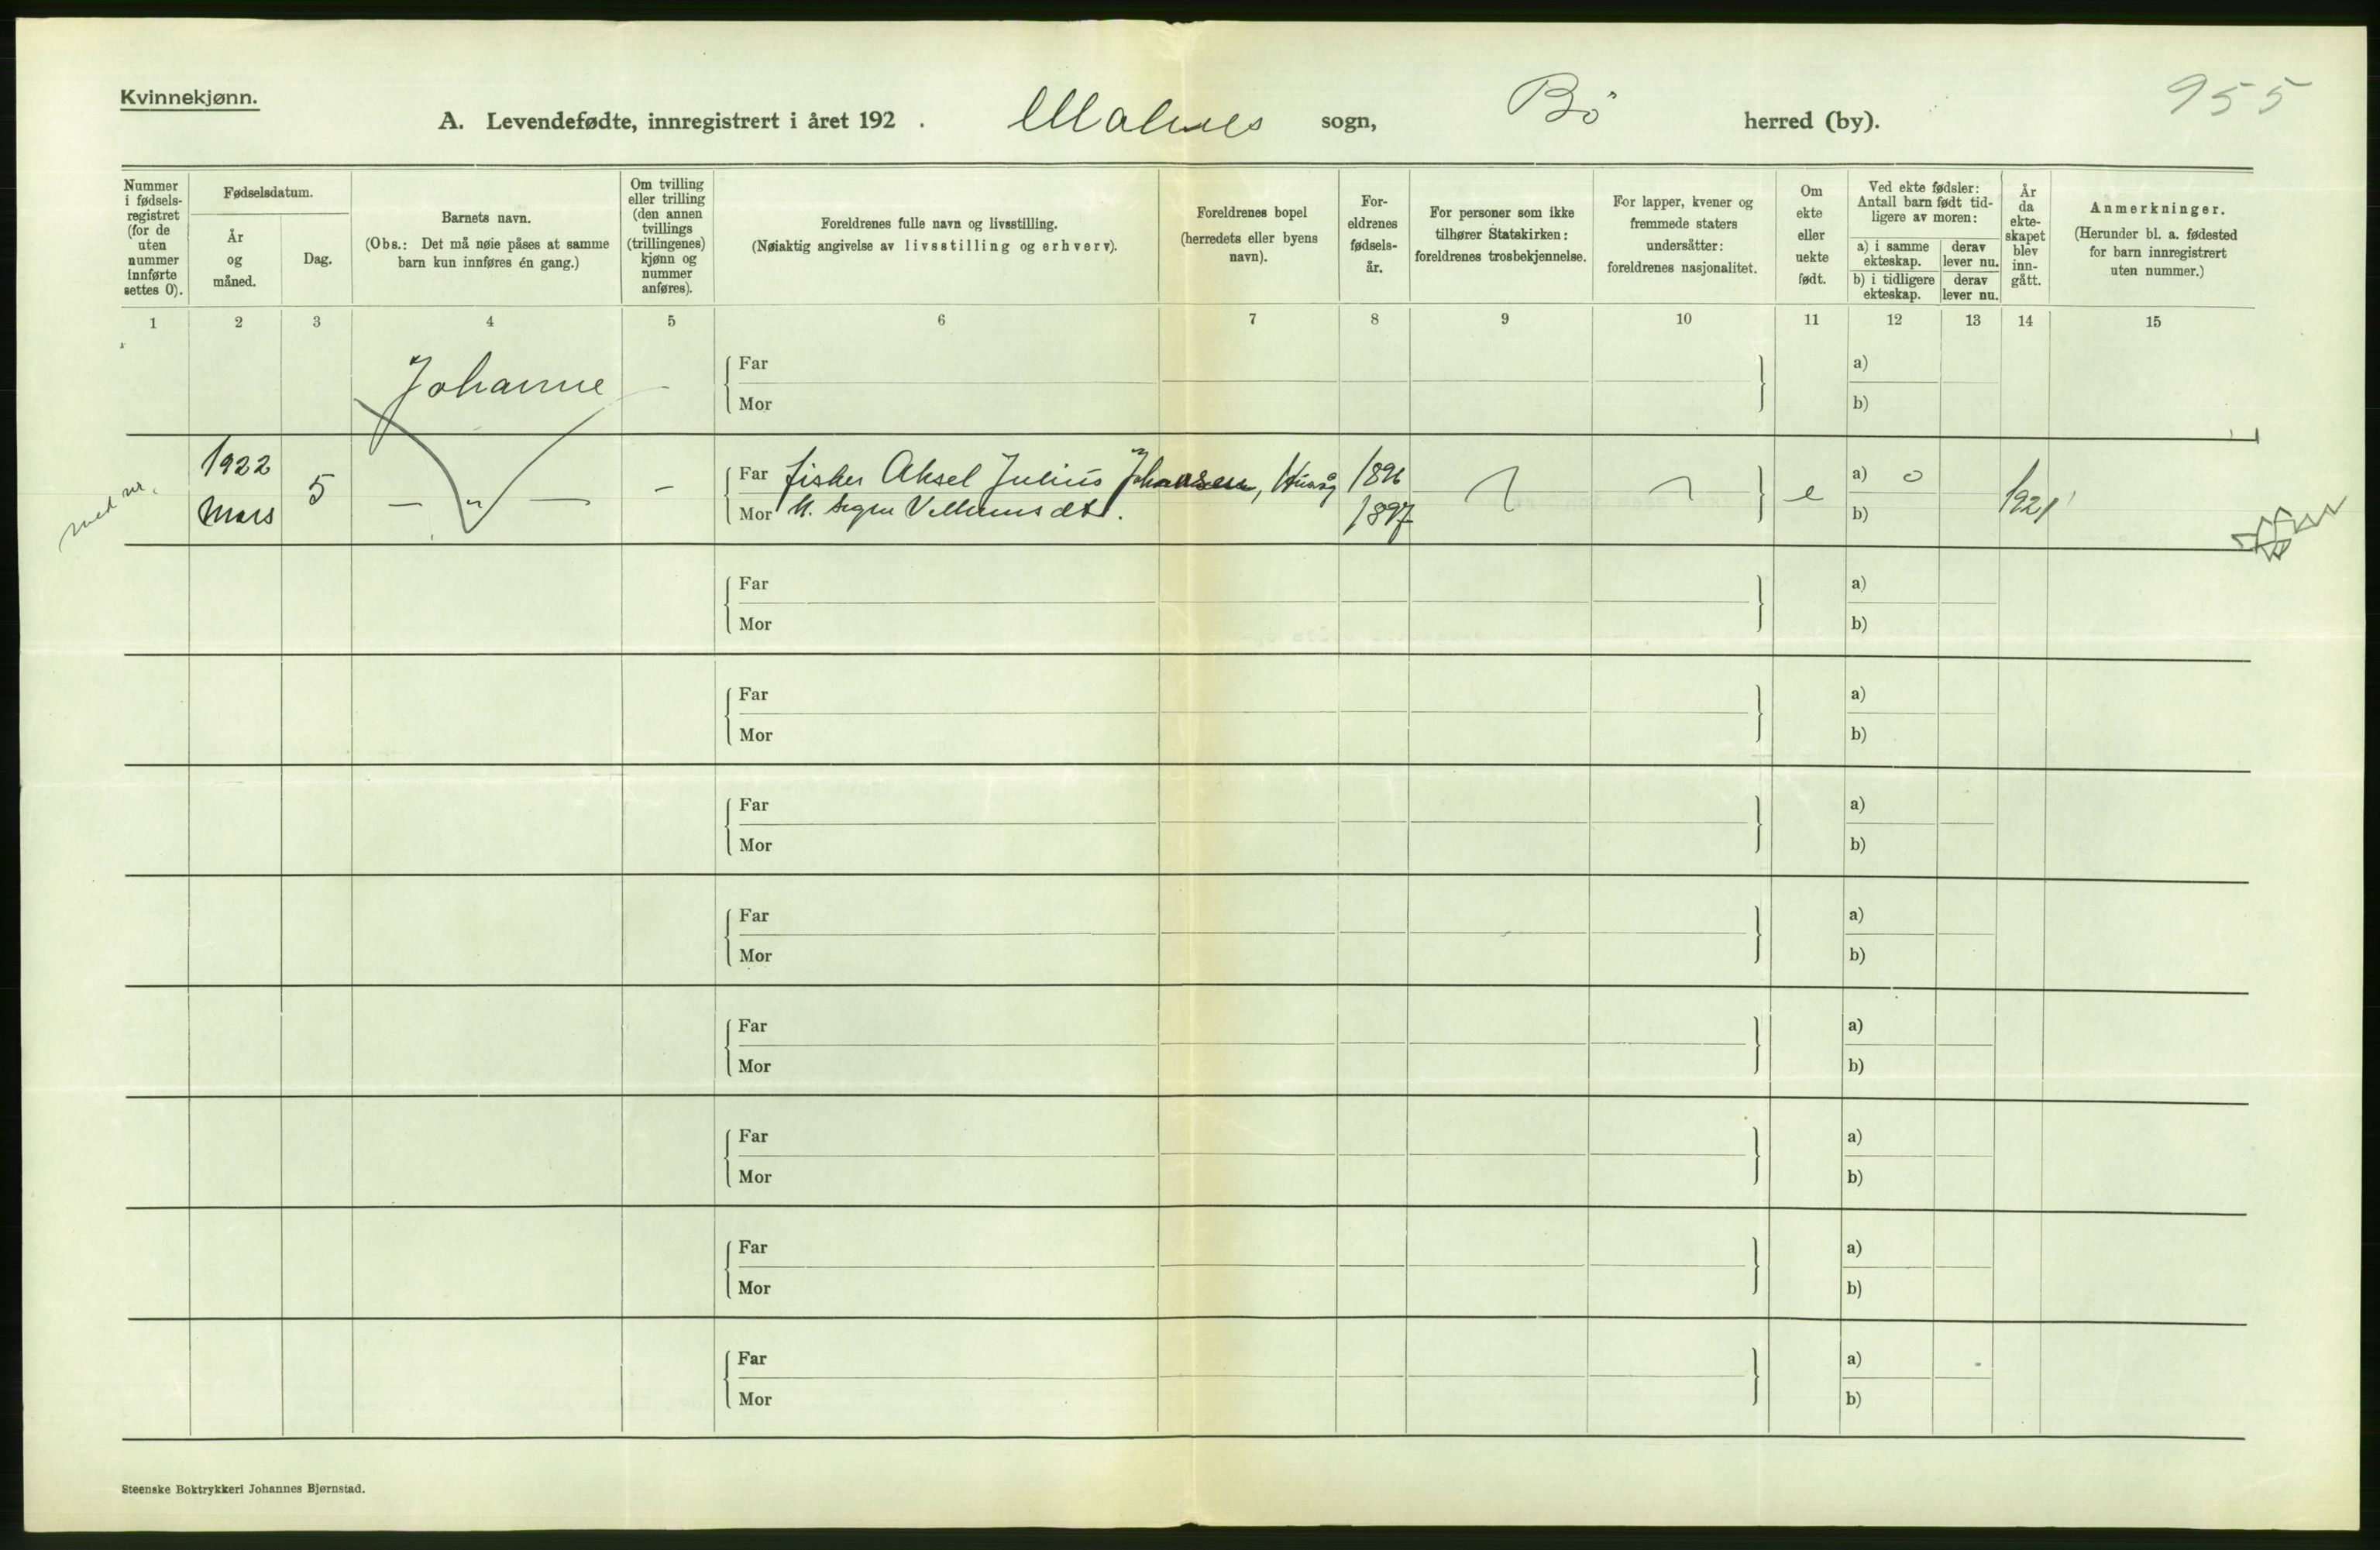 955
Kvinnekjønn.
A. Levendefødte, innregistrert i året 192 . Malnes sogn, Bö herred (by).
Nummer i fødsels-registret (for de uten nummer innførte settes 0).
Fødselsdatum.
År og måned.
Dag.
Barnets navn.
(Obs.: Det må nøie påses at samme barn kun innføres én gang.)
Om tvilling eller trilling (den annen tvillings (trillingenes) kjønn og nummer anføres).
Foreldrenes fulle navn og livsstilling.
(Nøiaktig angivelse av livsstilling og erhverv).
Foreldrenes bopel (herredets eller byens navn).
For-eldrenes fødsels-år.
For personer som ikke tilhører Statskirken: foreldrenes trosbekjennelse.
For lapper, kvener og fremmede staters undersåtter: foreldrenes nasjonalitet.
Om ekte eller uekte født.
Ved ekte fødsler: Antall barn født tid-ligere av moren:
a) i samme ekteskap.
derav lever nu.
b) i tidligere ekteskap.
derav lever nu.
År da ekte-skapet blev inn-gått.
Anmerkninger.
(Herunder bl. a. fødested for barn innregistrert uten nummer.)
1 2 3 4 5 6 7 8 9 10 11 12 13 14 15
Johanne - Far a)
Mor b)
med nr.
1922 Mars 5 — " — - Far fisker Aksel Julius Johansen, 1896 e a) 0 1921
Mor 1897 b)
Far a)
Mor b)
Far a)
Mor b)
Far a)
Mor b)
Far a)
Mor b)
Far a)
Mor b)
Far a)
Mor b)
Far a)
Mor b)
Far a)
Mor b)
Steenske Boktrykkeri Johannes Bjørnstad.